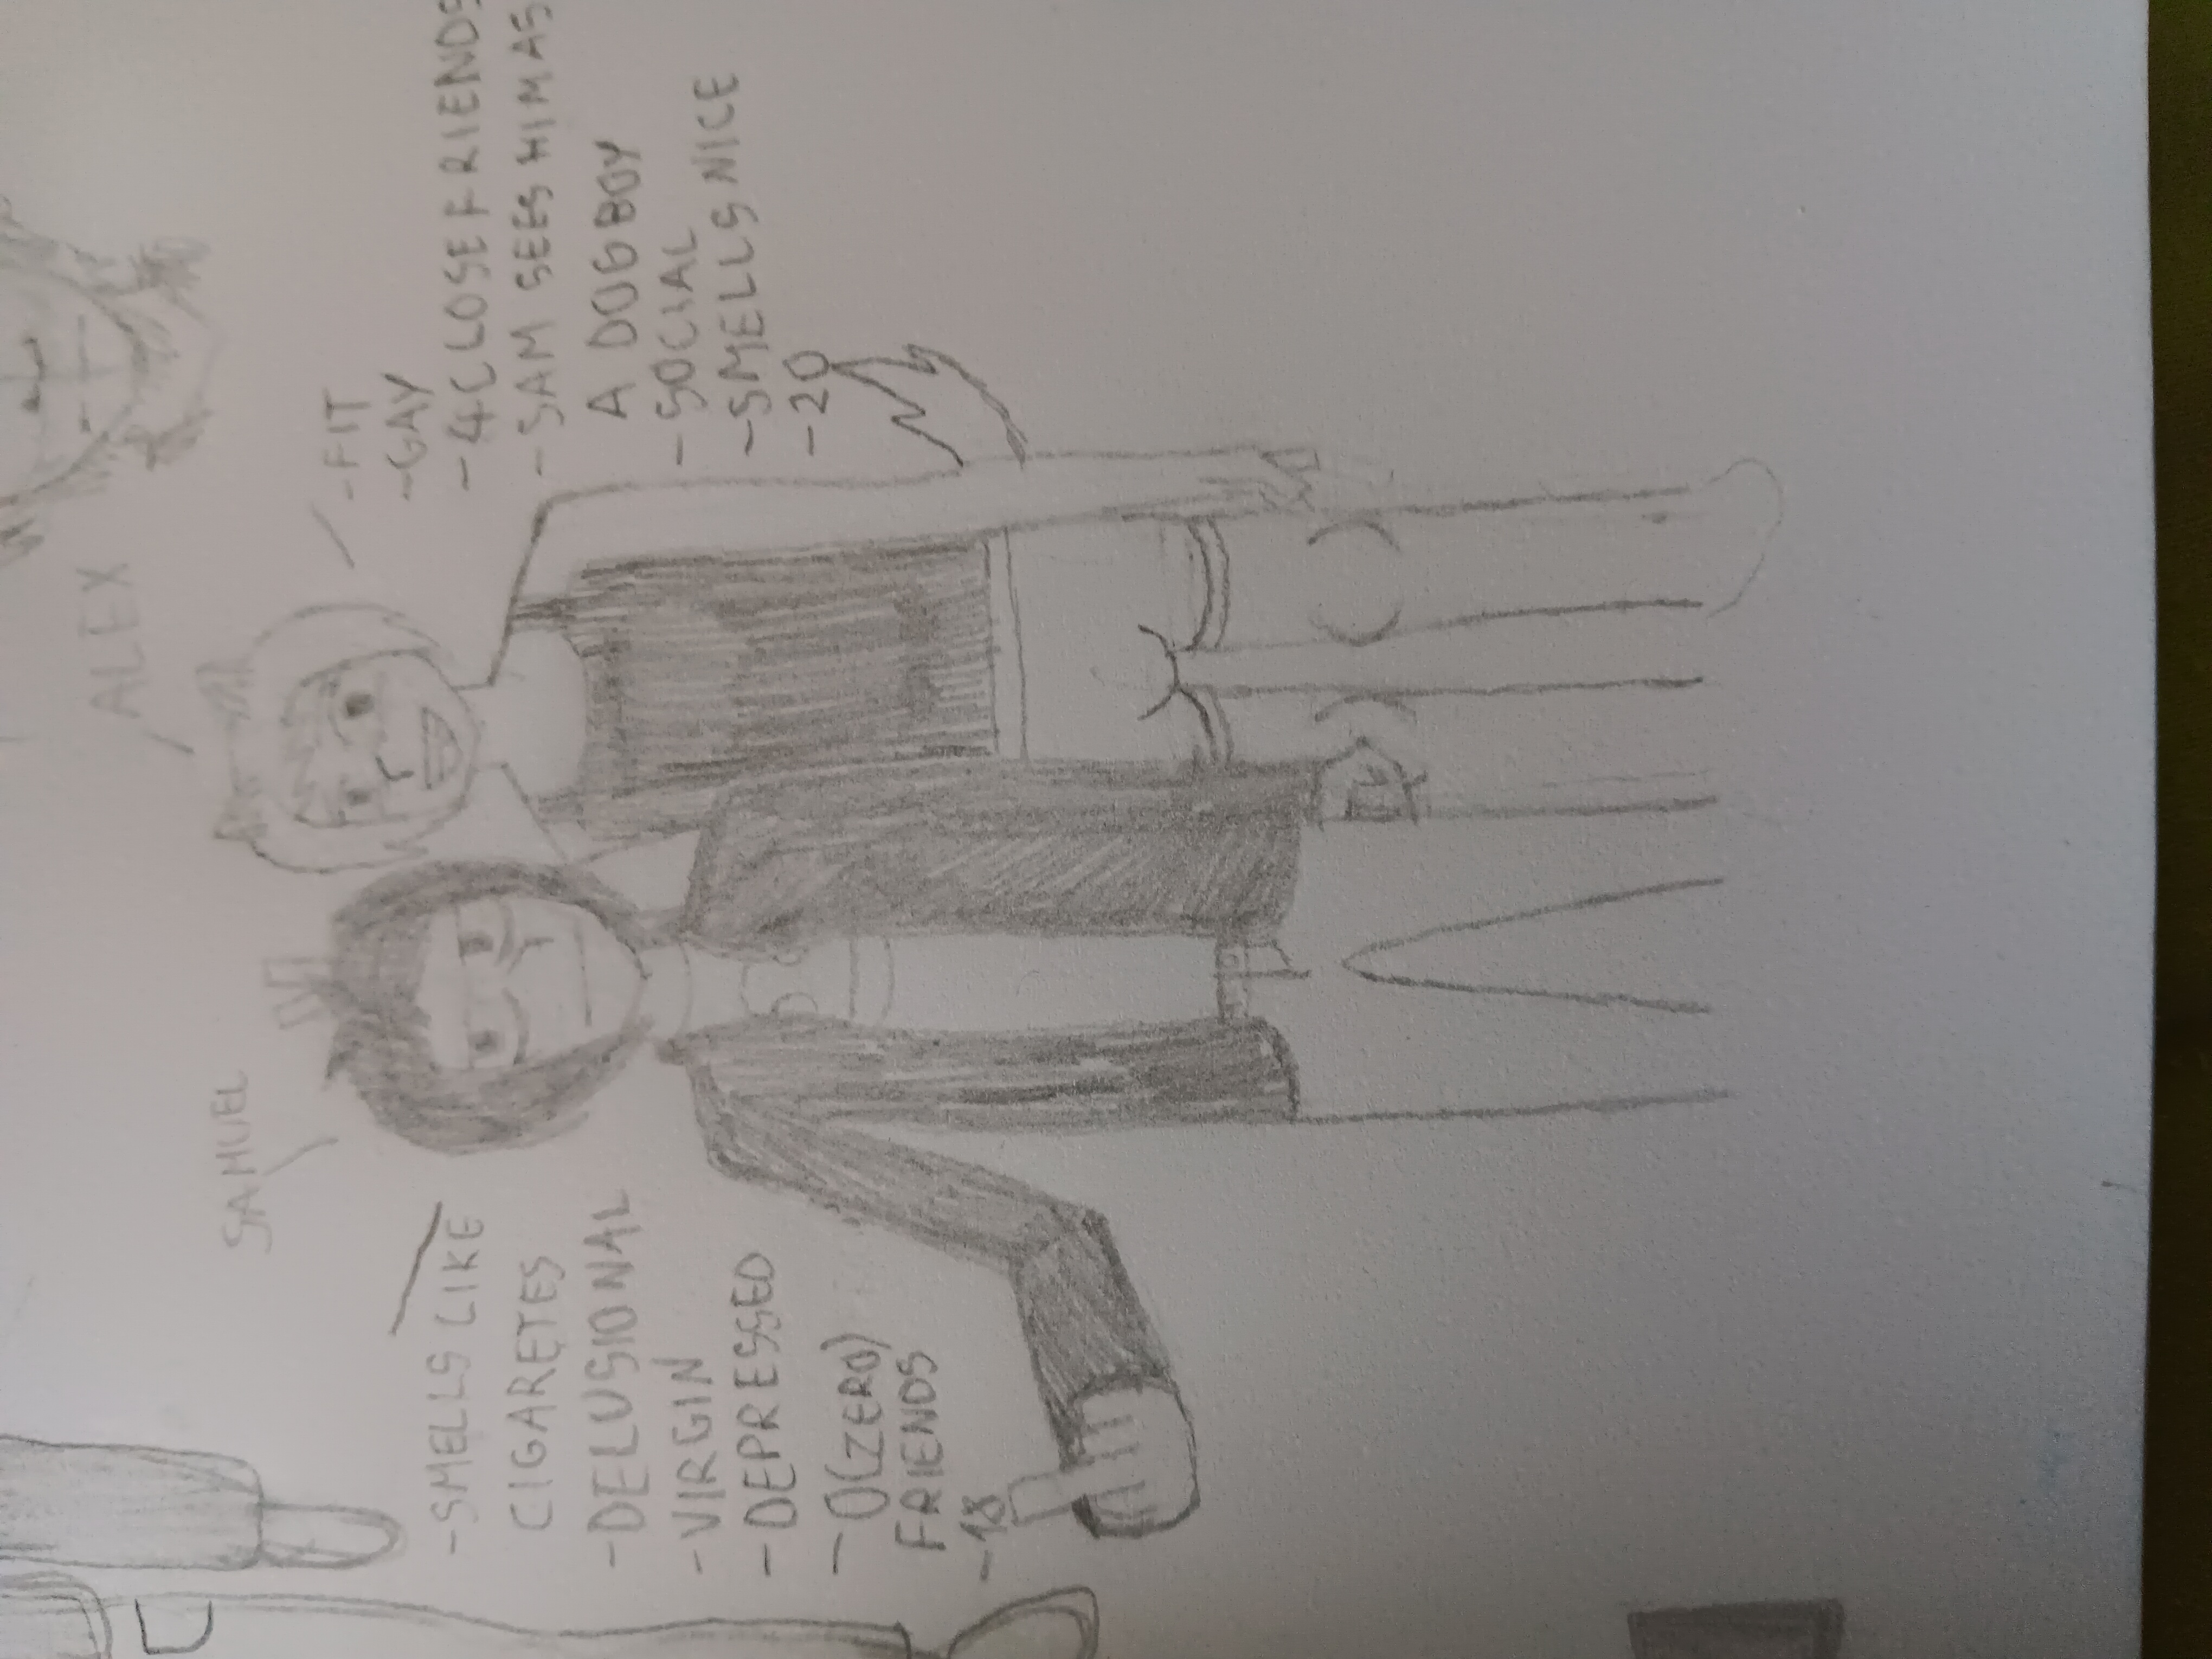 SAMUEL
-SMELLS LIKE
CIGARETES
-DELUSIONAL
-VIRGIN
-DEPRESSED
-0(ZERO)
FRIENDS
-18
ALEX
-FIT
-GAY
-4 CLOSE FRIENDS
-SAM SEES HIM AS
A DOGBOY
-SOCIAL
-SMELLS NICE
-20